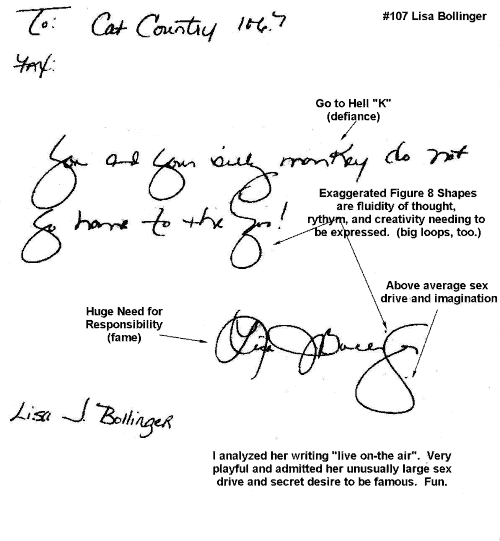 #107 Lisa Bollinger
To: Cat Country 106.7
Go to Hell "K"
(defiance)
You and your silly monKey do not
go home to the Zoo!
Exaggerated Figure 8 Shapes
are fluidity of thought,
rythym, and creativity needing to
be expressed. (big loops, too.)
Above average sex
drive and imagination
Huge Need for
Responsibility
(fame)
Lisa J Bollinger
Lisa J. Bollinger
I analyzed her writing "live on-the air". Very
playful and admitted her unusually large sex
drive and secret desire to be famous. Fun.